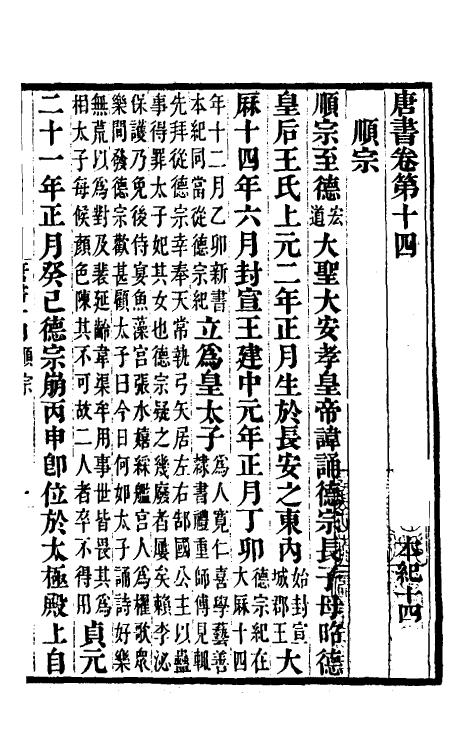 唐書卷第十四　本紀十四
順宗
順宗至德宏道大聖大安孝皇帝諱誦德宗長子母昭德
皇后王氏上元二年正月生於長安之東內始封宣城郡王大
厤十四年六月封宣王建中元年正月丁卯德宗紀在大厤十四
年十二月乙卯新書本紀同當從德宗紀立爲皇太子爲人寬仁喜學藝善隸書禮重師傅見輒
先拜從德宗幸奉天常執弓矢居左右郜國公主以蠱
事得罪太子妃其女也德宗疑之幾廢者屢矣賴李泌
保護乃免後侍宴魚藻宮張水嬉綵艦宮人爲櫂歌衆
樂間發德宗歡甚顧太子曰今日何如太子誦詩好樂
無荒以爲對及裴延齡韋渠牟用事世皆畏其爲
相太子每候顏色陳其不可故二人者卒不得用貞元
二十一年正月癸巳德宗崩丙申卽位於太極殿上自
順宗